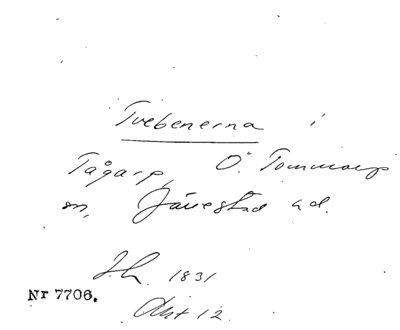 Tvebenerna i
Tågarp, Ö. Tommarp
sn, Järrestad hd.
Jh. 1831
Nr 7706.
Akt 12